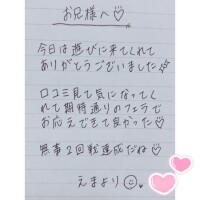 お兄様へ♡
今日は遊びに来てくれて
ありがとうございました☆
口コミ見て気になってく
れて期待通りのフェラで
お応えできて良かった♡
無事2回戦達成だね♡
えまより☺♥